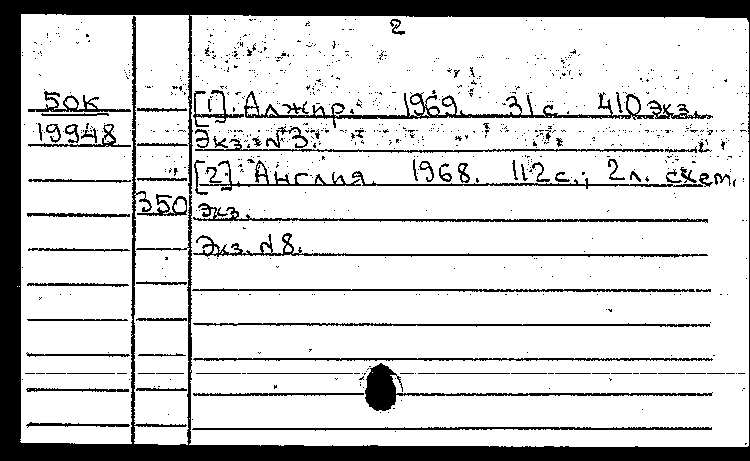 2
50к [1]. Алжир. 1969. 31 с. 410 экз.
19948 Экз. N 3.
[2]. Англия. 1968. 112 с.; 2 л. схем.
350 экз.
Экз. N 8.